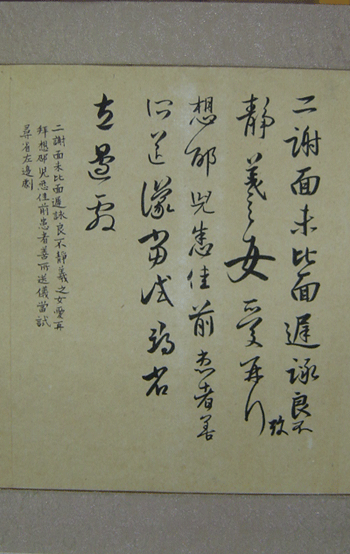 二謝面未比面遲詠良不
靜羲之女愛再拜
想邵兒悉佳前患者善
所送議當試尋省
左邊劇
二謝面未比面遲詠良不靜羲之女愛再
拜想邵兒悉佳前患者善所送儀當試
尋省左邊劇